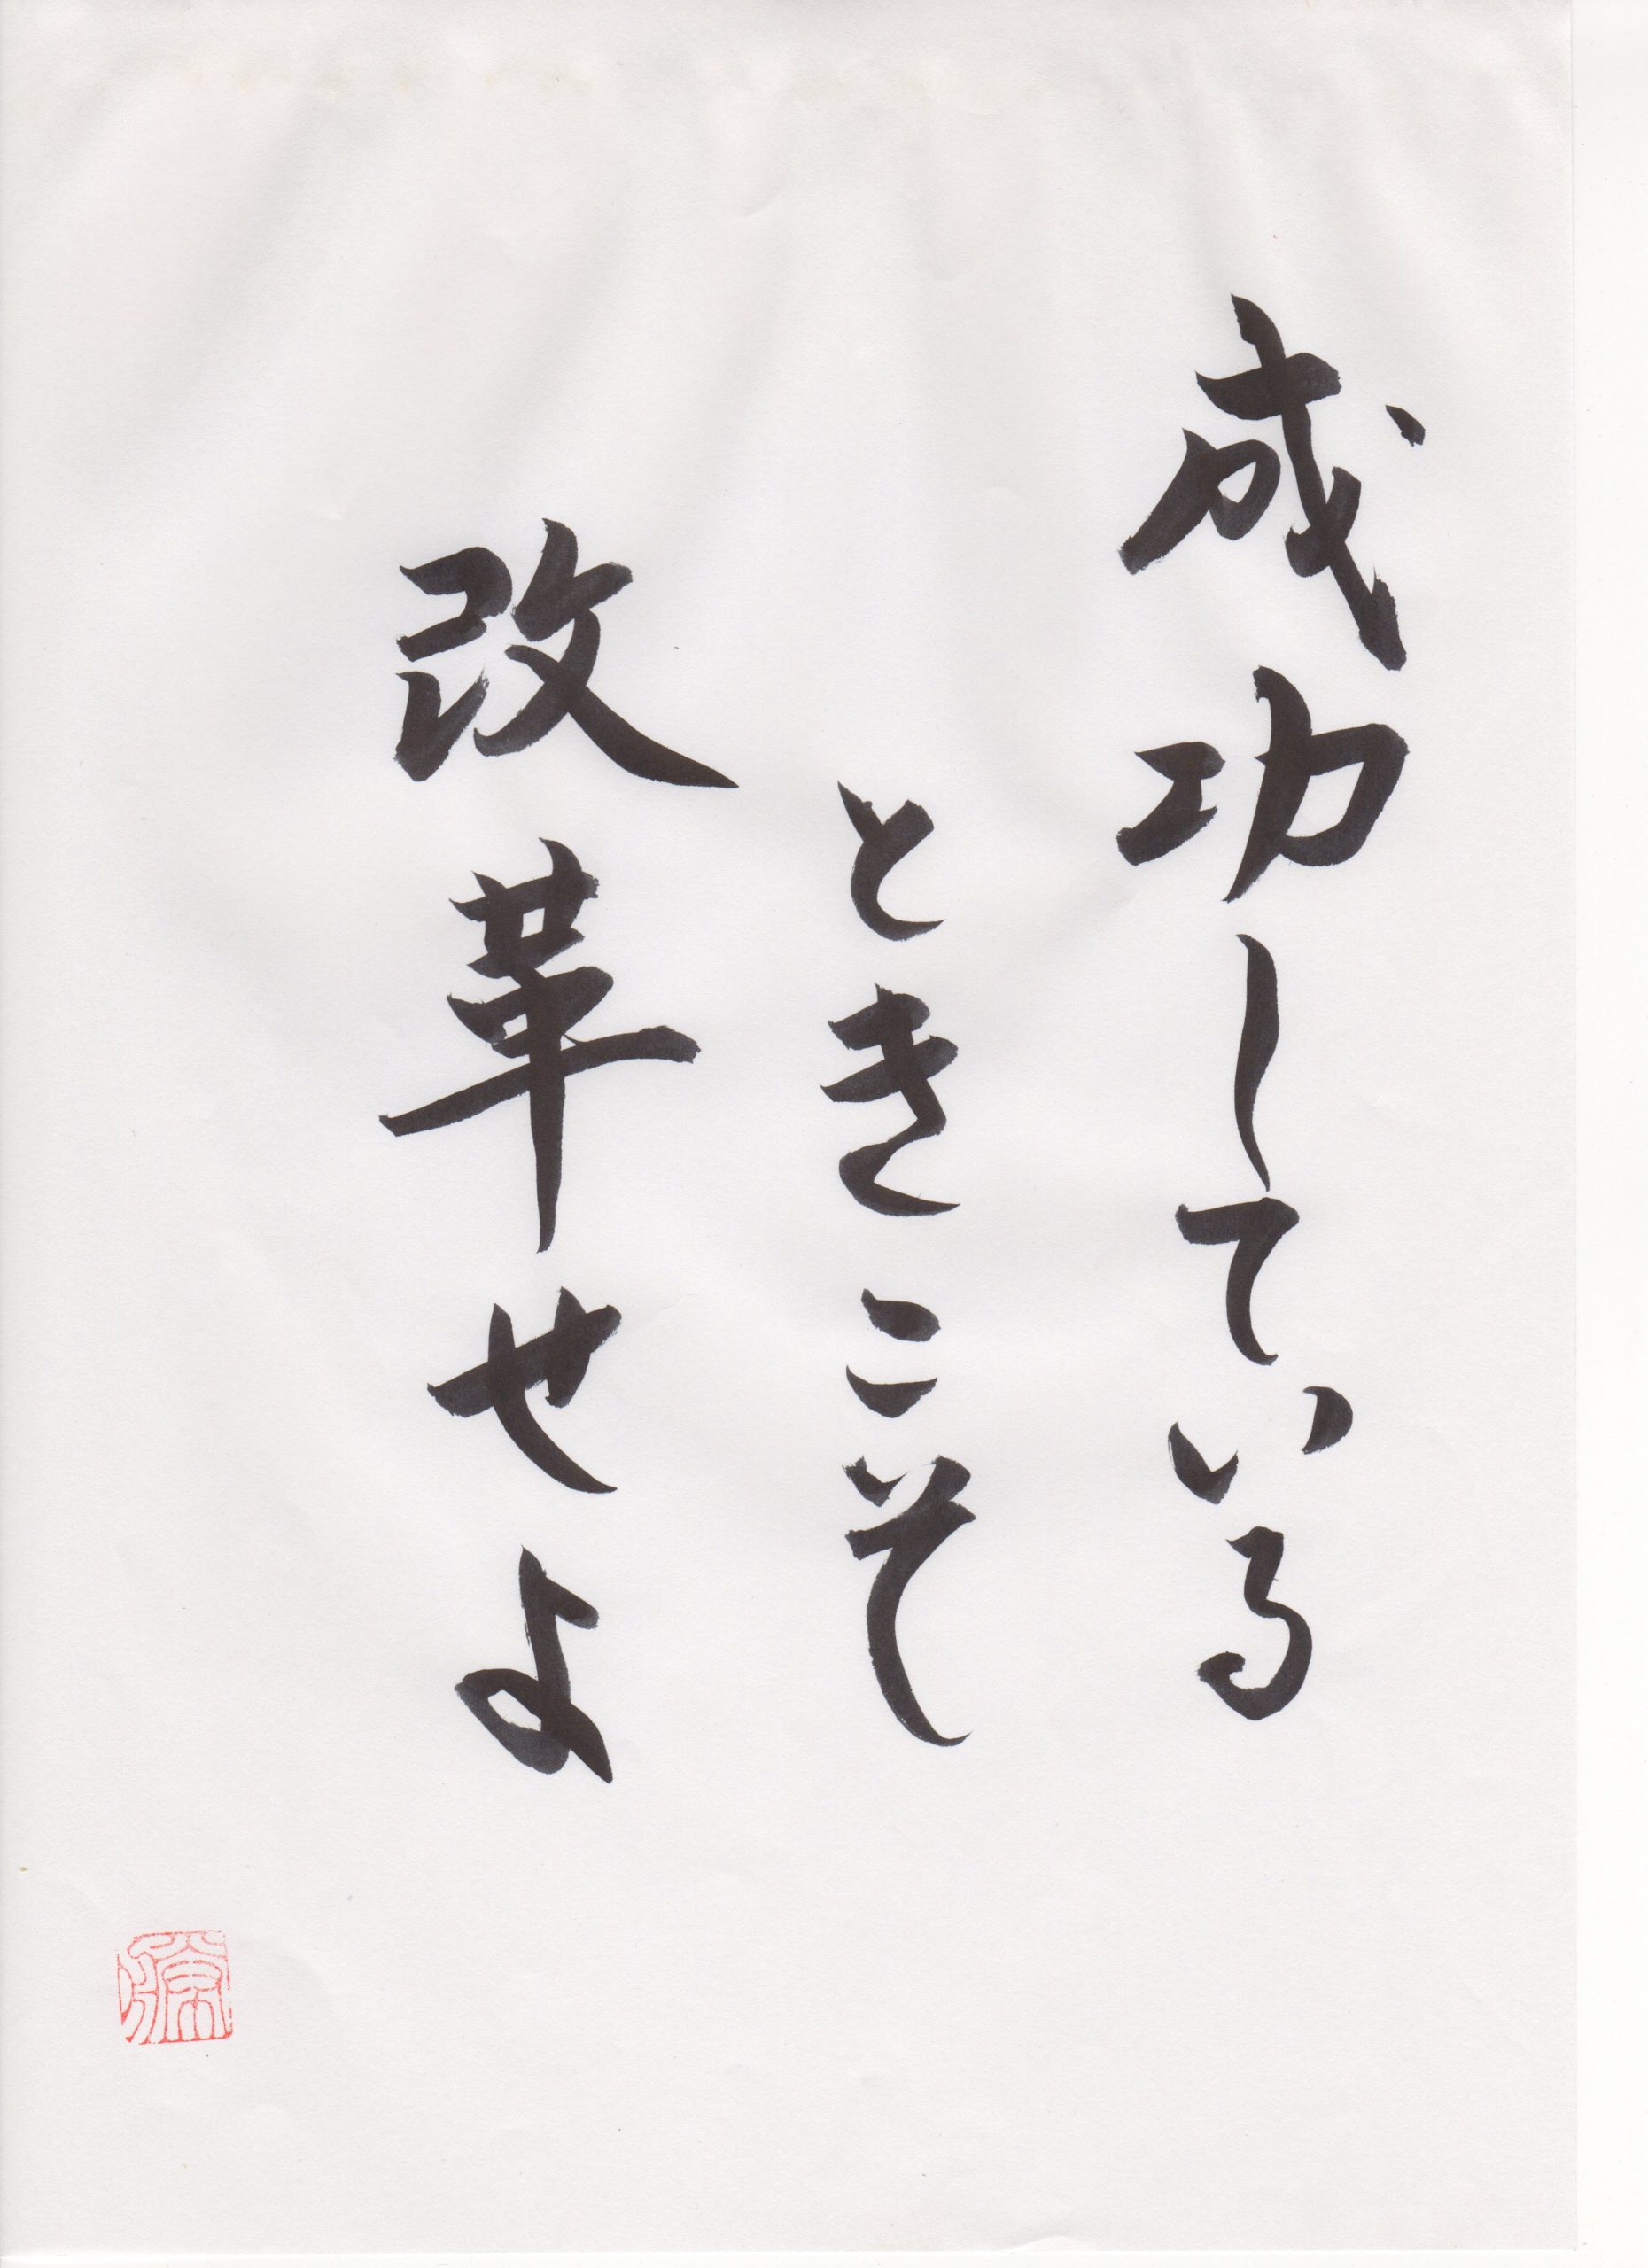 成功している
ときこそ
改革せよ